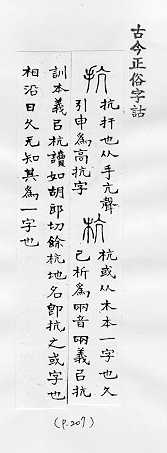 古今正俗字詁
抗 抗扞也从手亢聲
引申為高抗字
杭 杭或从木本一字也久
已析為兩音兩義㠯抗
訓本義㠯杭讀如胡郎切餘杭地名即抗之或字也
相沿日久无知其為一字也
(p.207)